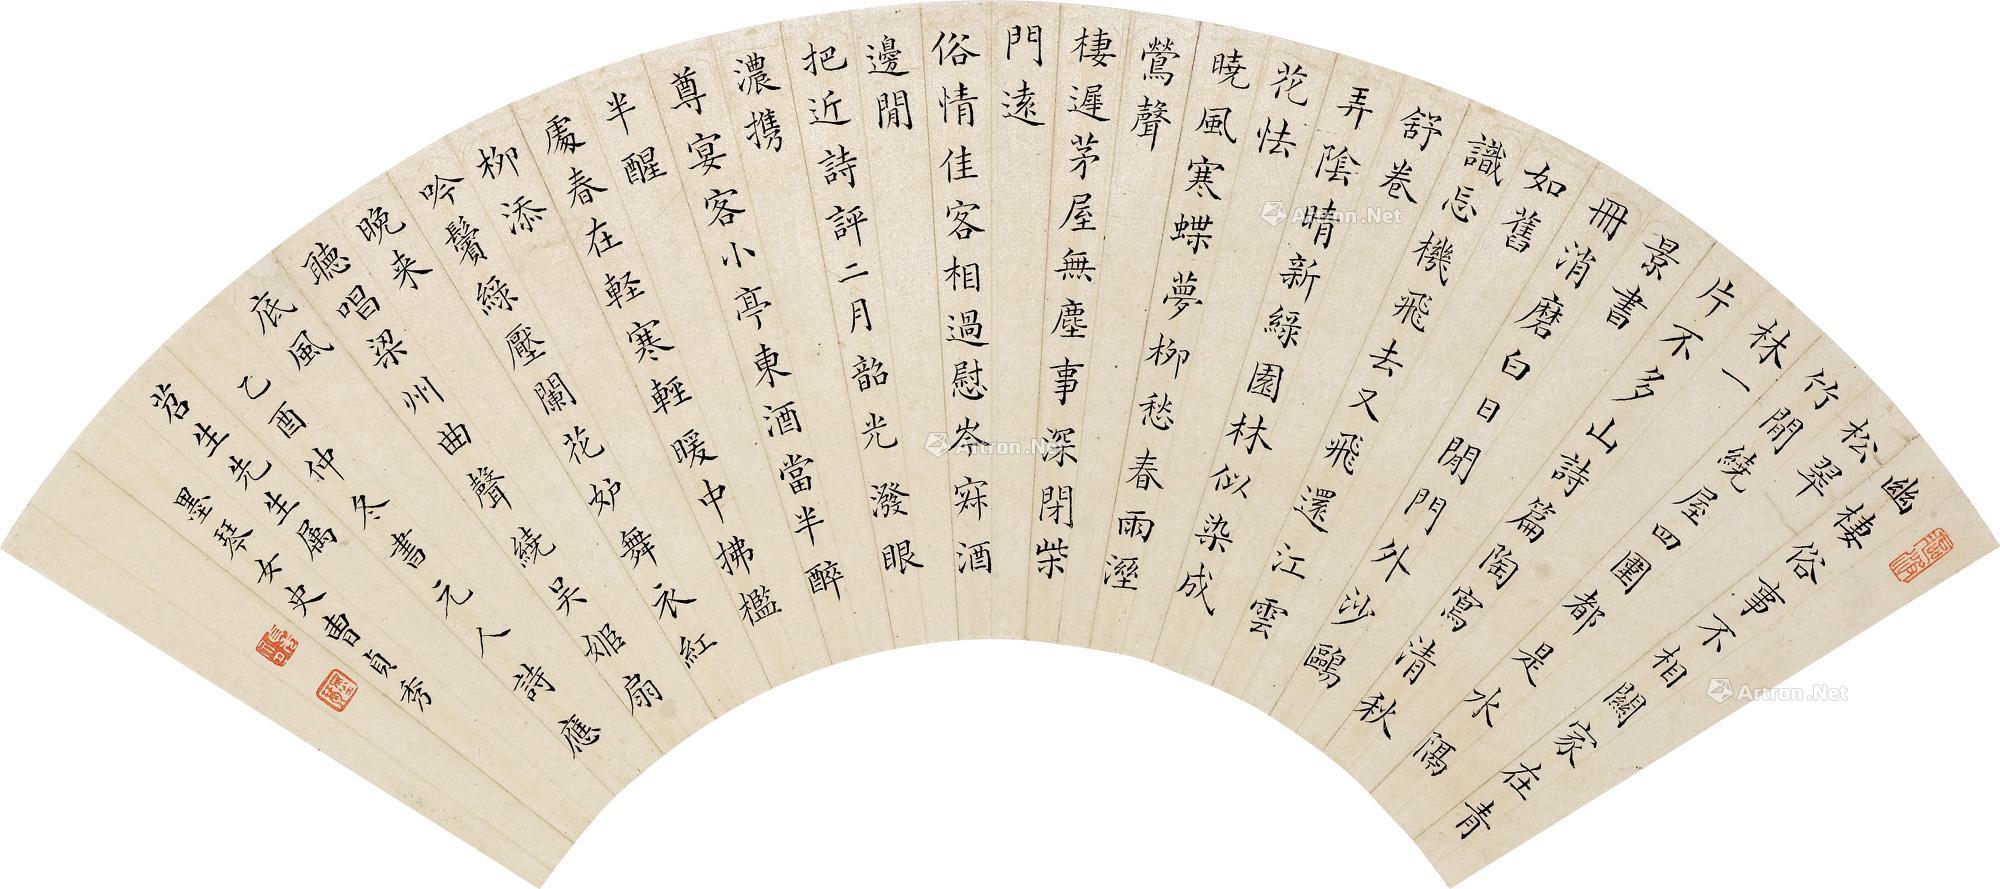 幽棲俗事不相關家在青
松翠
竹閒繞屋四圍都是水隔
林一
片不多山詩篇陶寫清秋
景書
冊消磨白日閒門外沙鷗
如舊
識忘機飛去又飛還江雲
舒卷
弄陰晴新綠園林似染成
花怯
曉風寒蝶夢柳愁春雨溼
鶯聲
棲遲茅屋無塵事深閉柴
門遠
俗情佳客相過慰岑寂酒
邊閒
把近詩評二月韶光潑眼
濃携
尊宴客小亭東酒當半醉
半醒
處春在軽寒輕暖中拂檻
柳添
吟鬢綠壓闌花妒舞衣紅
晚来
聽唱梁州曲聲繞吳姬扇
底風
乙酉仲冬書元人詩應
苕生先生属
墨琴女史曹貞秀
Artron.Net
Artron.Net
Artron.Net